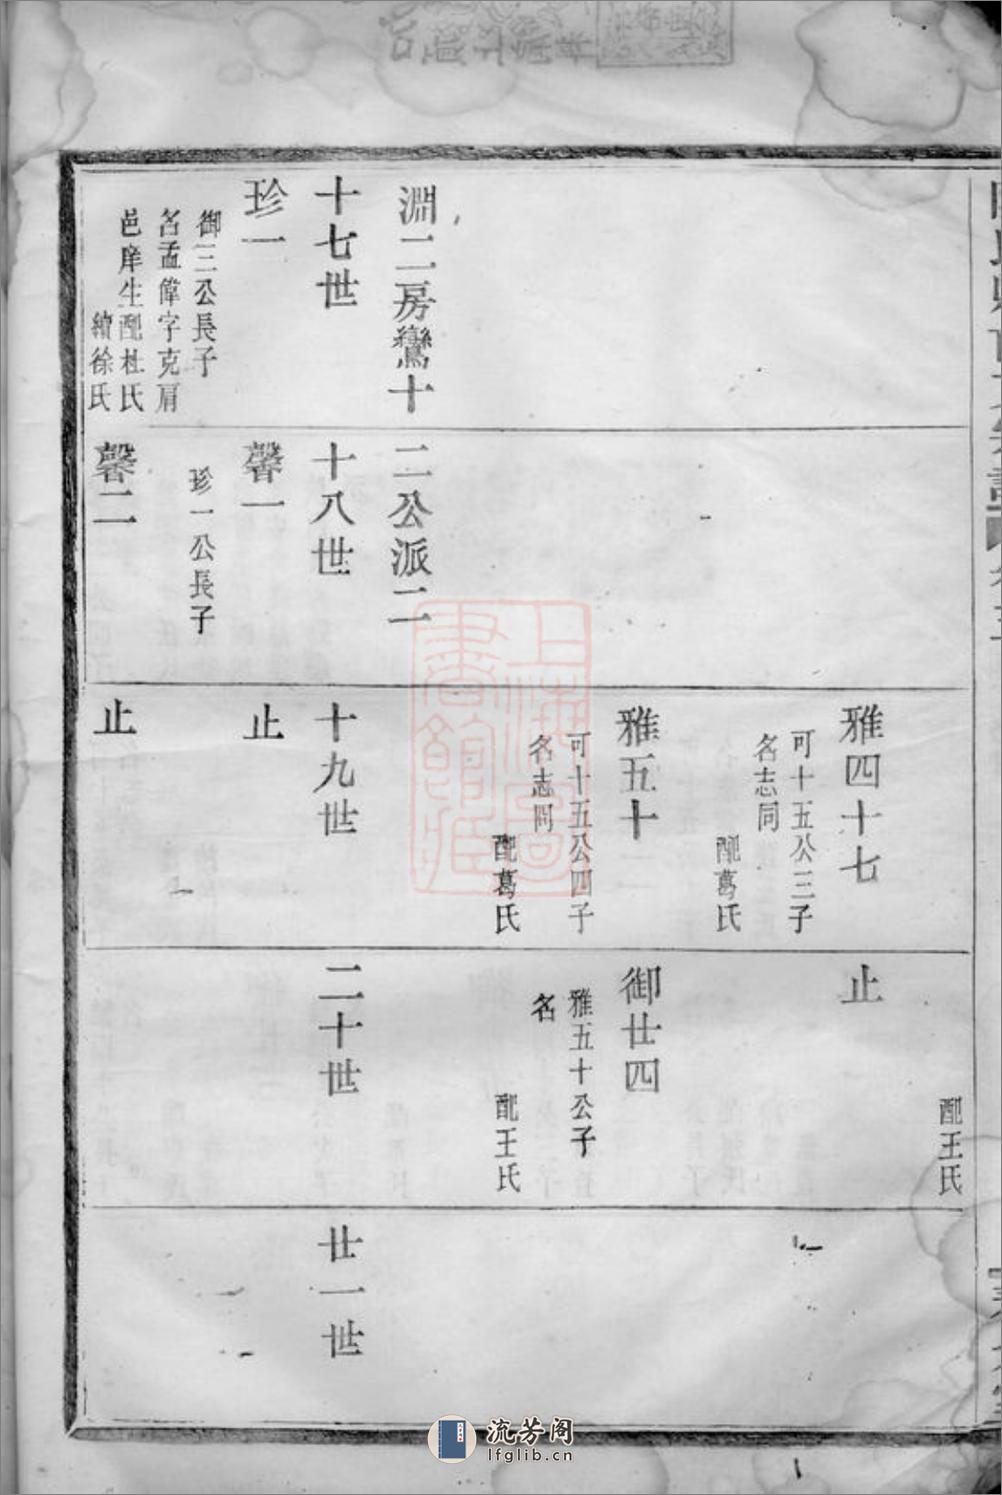 配王氏
雅四十七
可十五公三子
名志同
配葛氏
止
雅五十
可十五公四子
名志問
配葛氏
御廿四
雅五十公子
名
配王氏
淵二房鸞十
二公派二
十七世
十八世
十九世
二十世
廿一世
珍一
御三公長子
名孟偉字克肩
邑庠生配杜氏
續徐氏
馨一
珍一公長子
止
馨二
止
上海圖書館藏
流芳阁
lfglib.cn